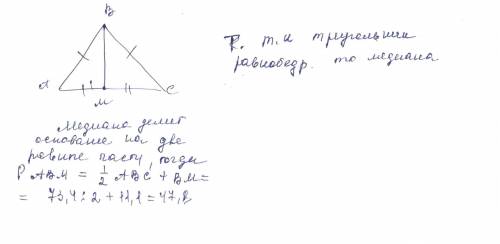 B
A
M
C
Т. к треугольник
равнобедр. то медиана
Медиана делит
основание на две
равные части, тогда
P ABM = 1/2 ABC + BM =
= 73,4 : 2 +